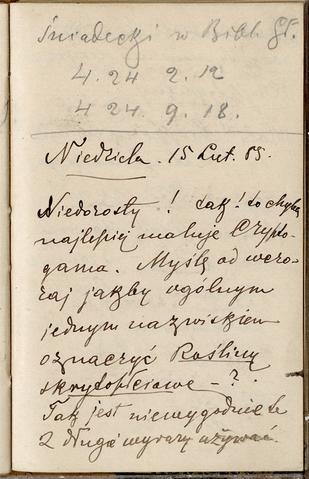 Śniadecki w Bibl. Gł.
4. 24 2. 12
4 24. 9. 18.
Niedziela. 15 Lut. 85.
Niedorosły! tak! to chyba
najlepiej maluje Crypto-
gama. Myślę od wczo-
raj jakby ogólnym
jednym nazwiskiem
oznaczyć Rośliny
skrytopłciowe - ?
Tak jest niewygodnie te
2 długie wyrazy używać.